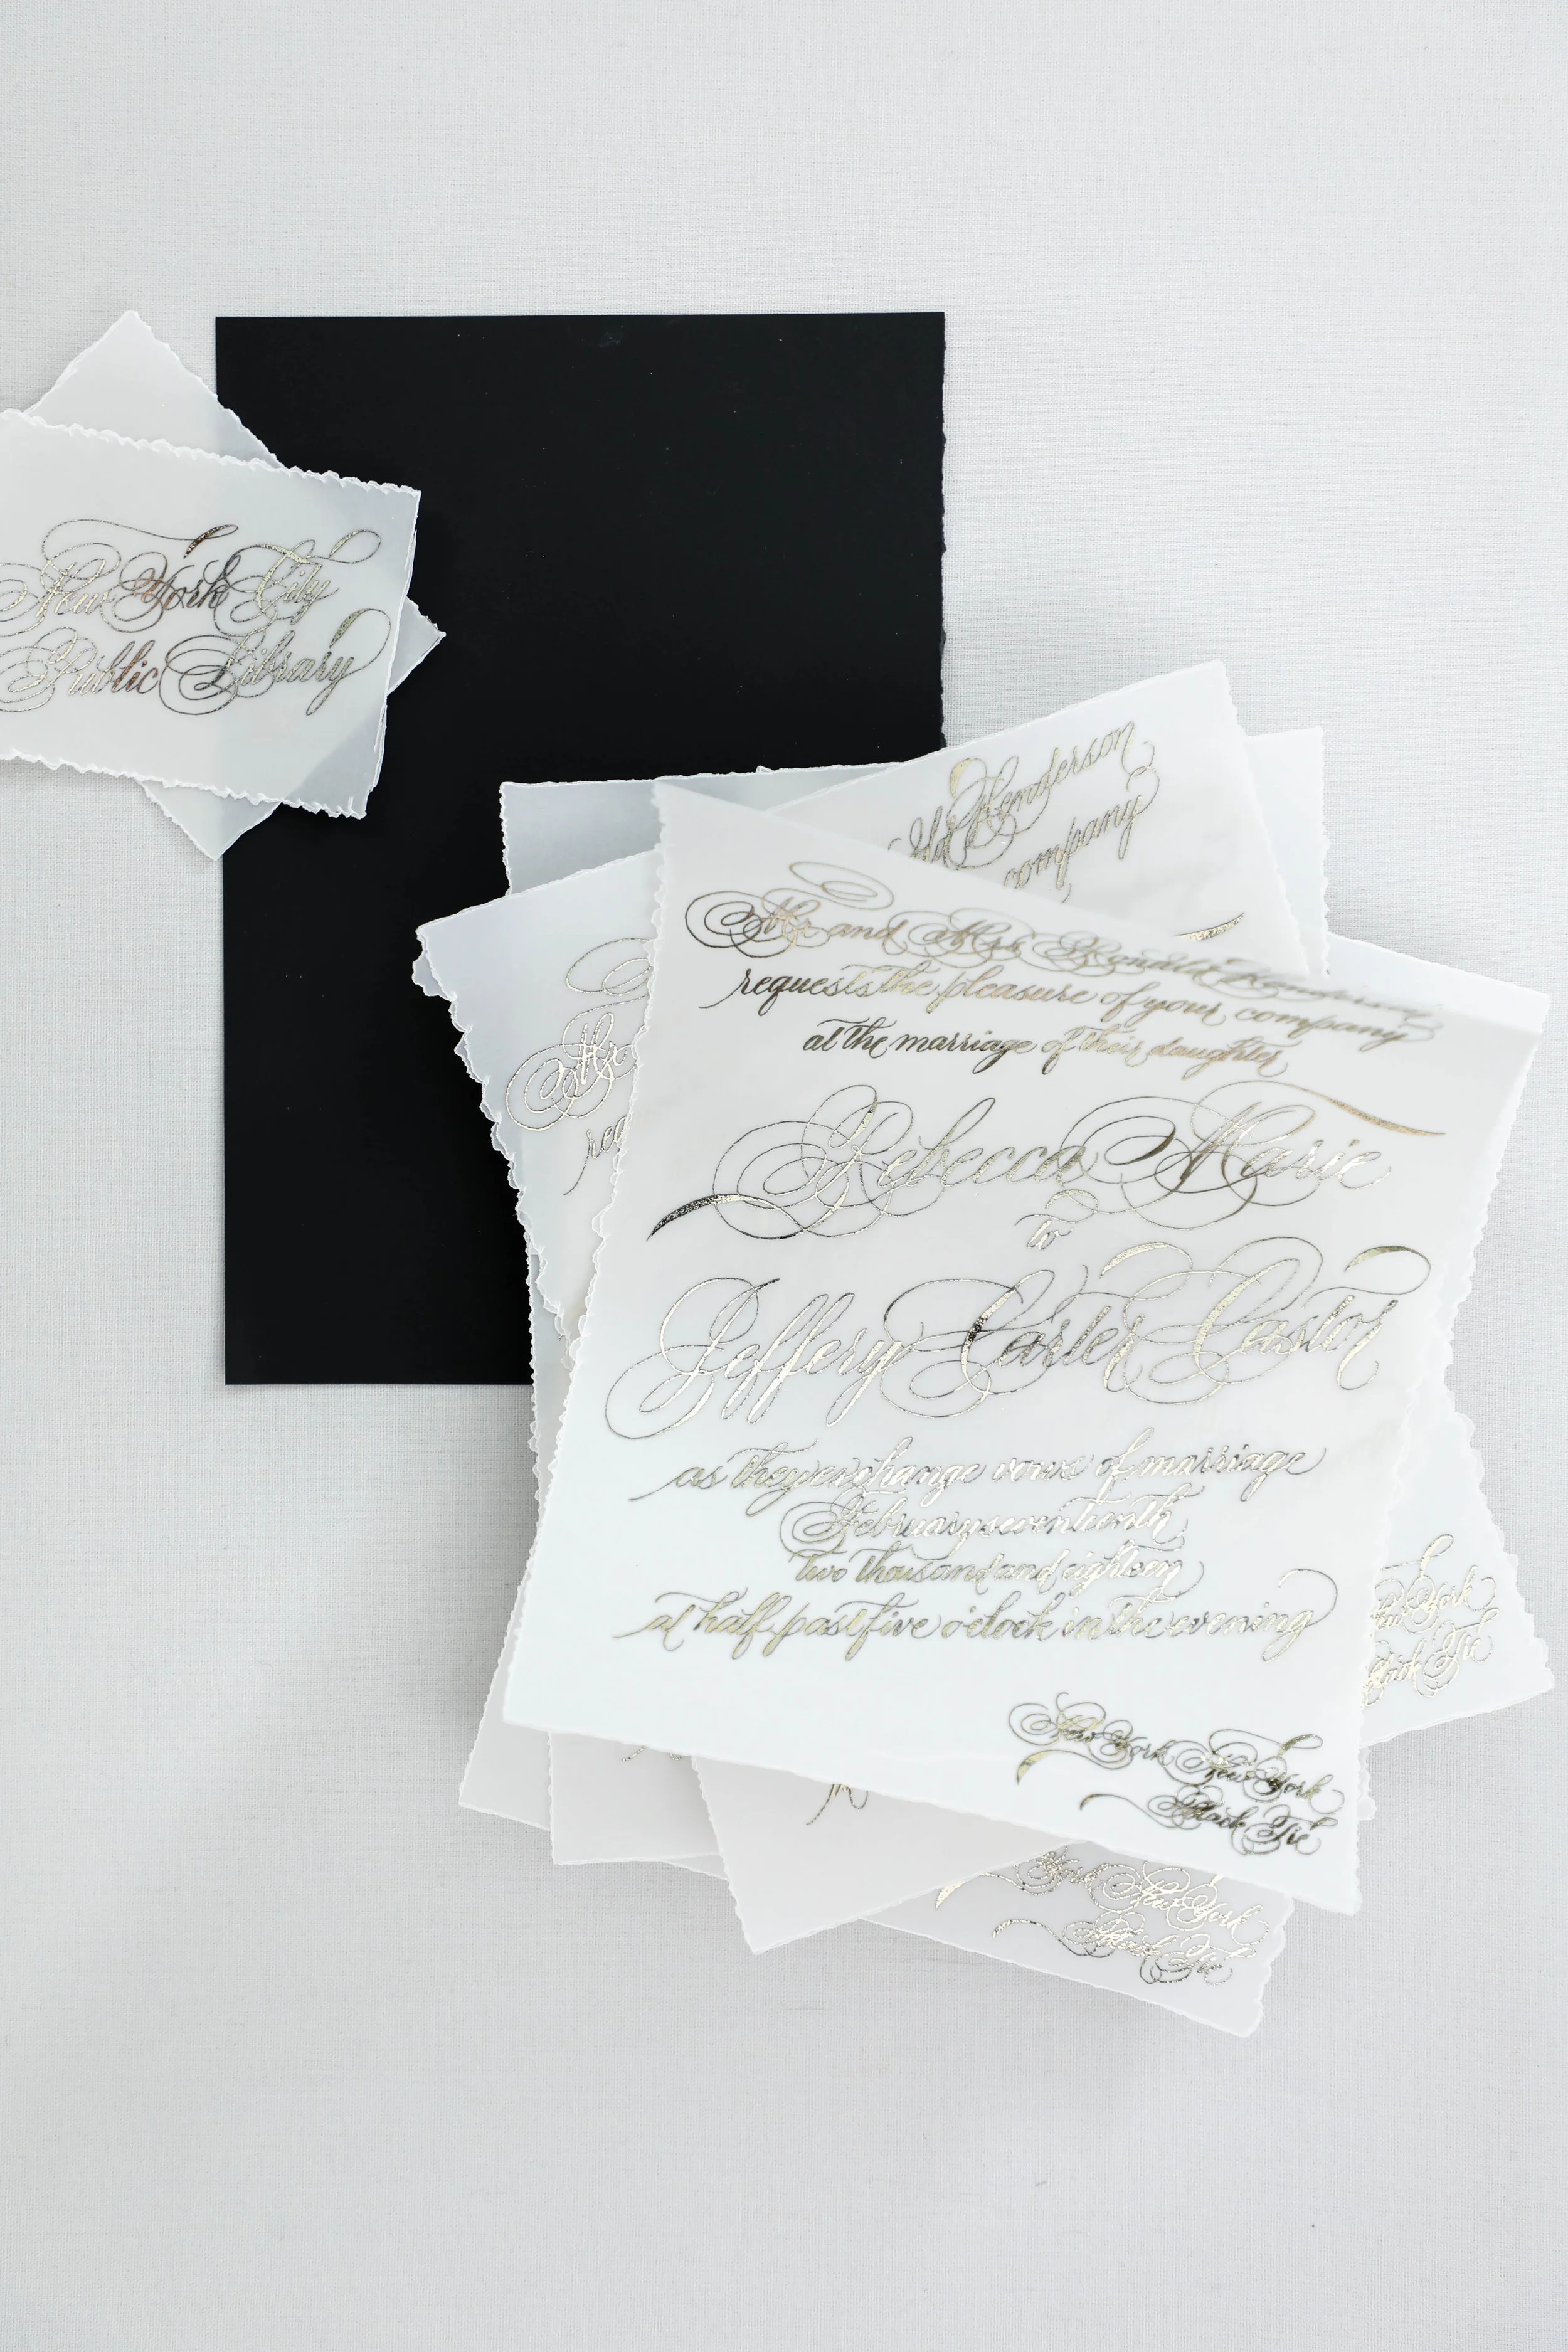 New York City
Public Library
Henderson
company
Mr and Mrs Ronald Henderson
requests the pleasure of your company
at the marriage of their daughter
Rebecca Marie
to
Jeffery Carter Castor
as they exchange vows of marriage
February seventeenth
two thousand and eighteen
at half past five o'clock in the evening
New York New York
Black Tie
Mr
req
York
Black Tie
York New York
Black Tie